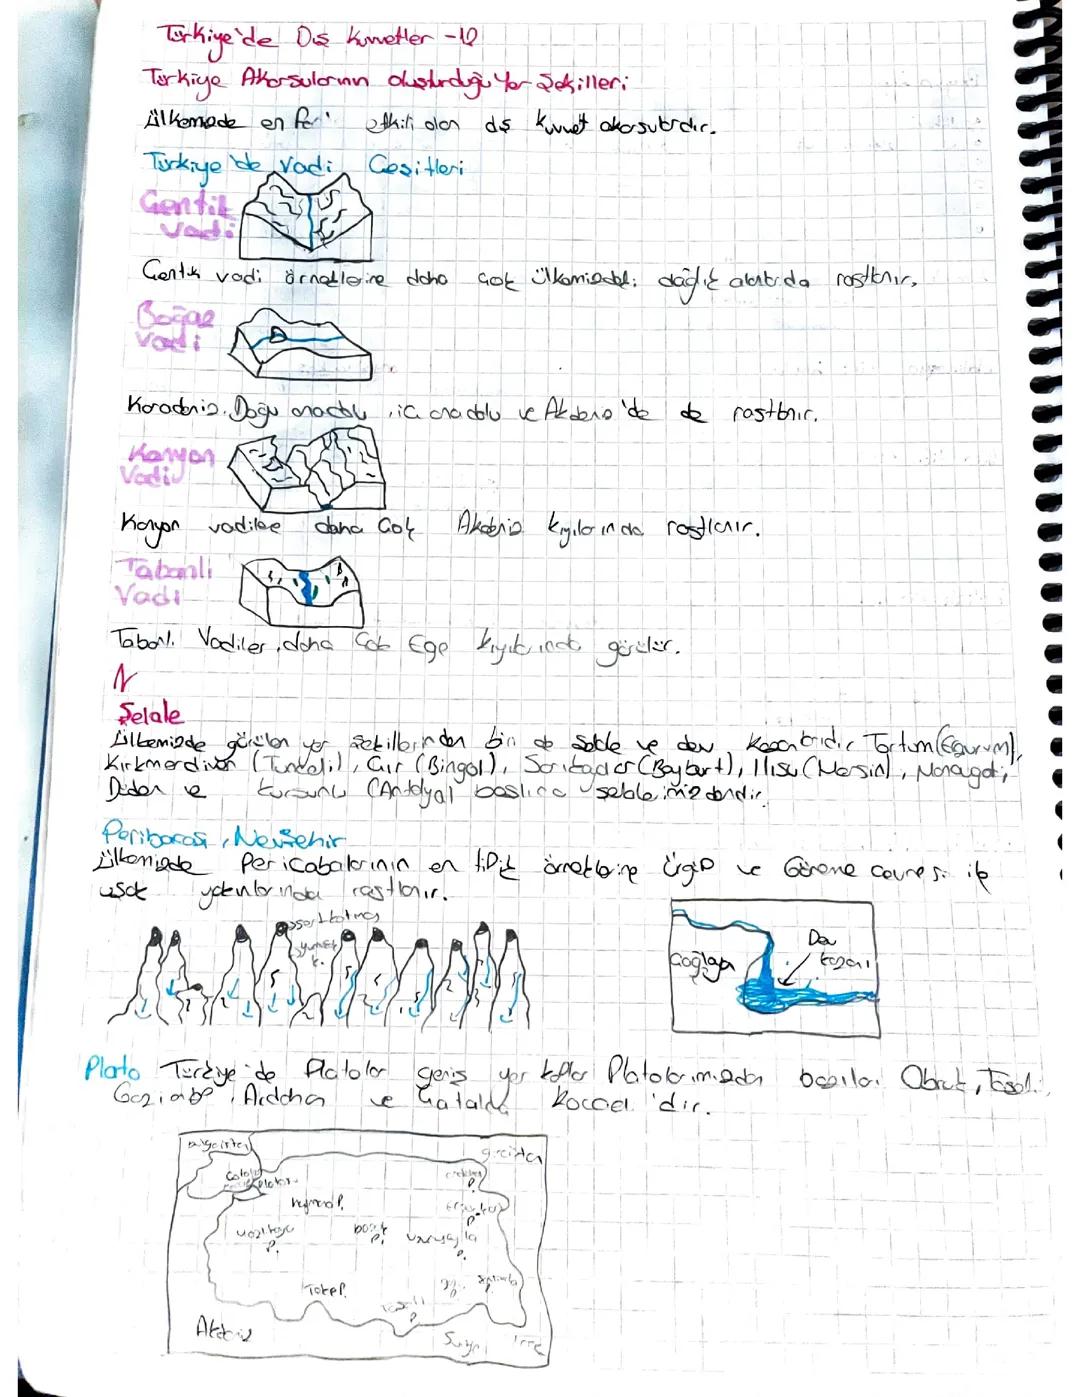 Türkiye'de Dış Kuvvetler -10
Türkiye Akarsularının oluşturduğu Yer Şekilleri
Ülkemizde en etkili olan dış kuvvet akarsulardır.
Türkiye'de Vadi Çeşitleri
Çentik
vadi
Çentik vadi örneklerine daha çok ülkemizdeki dağlık alanlarda rastlanır.
Boğaz
vadi
Karadeniz, Doğu anadolu, iç anadolu ve Akdeniz'de de rastlanır.
Kanyon
Vadi
Kanyon vadilere daha çok Akdeniz kıyılarında rastlanır.
Tabanlı
Vadi
Tabanlı Vadiler, daha çok Ege kıyılarında görülür.
Şelale
Ülkemizde görülen yer şekillerinden biri de Şelale ve dev kazanlarıdır. Tortum (Erzurum),
Kırkmerdiven (Tunceli), Çır (Bingöl), Sırakayalar (Bayburt), Ilısu (Mersin), Manavgat,
Düden ve Kurşunlu (Antalya) başlıca şelalelerimizdendir.
Peribacası, Nevşehir
Ülkemizde Pericabalarının en tipik örneklerine Ürgüp ve Göreme çevresi ile
uşak yakınlarında rastlanır.
sert katman
yumuşak
k.
Çağlayan
Dev
kazanı
Plato Türkiye'de Platolar geniş yer kaplar Platolarımızdan bazıları Obruk, Taşeli,
Gaziantep, Ardahan ve Çatalca Kocaeli'dir.
Bulgaristan
gürcistan
haymana P.
bozok
P.
uzunyayla
P.
yazılıkaya
P.
Teke P.
taşeli
P.
Akdeniz
Suriye
Irak